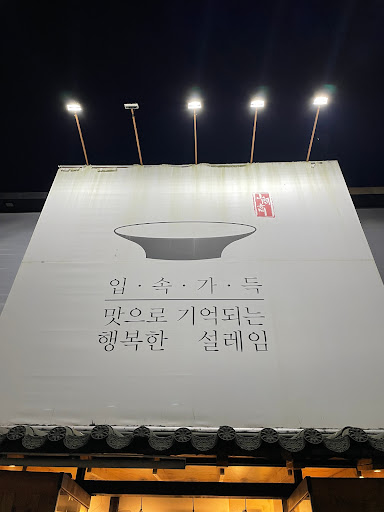 입·속·가·득
맛으로 기억되는
행복한 설레임